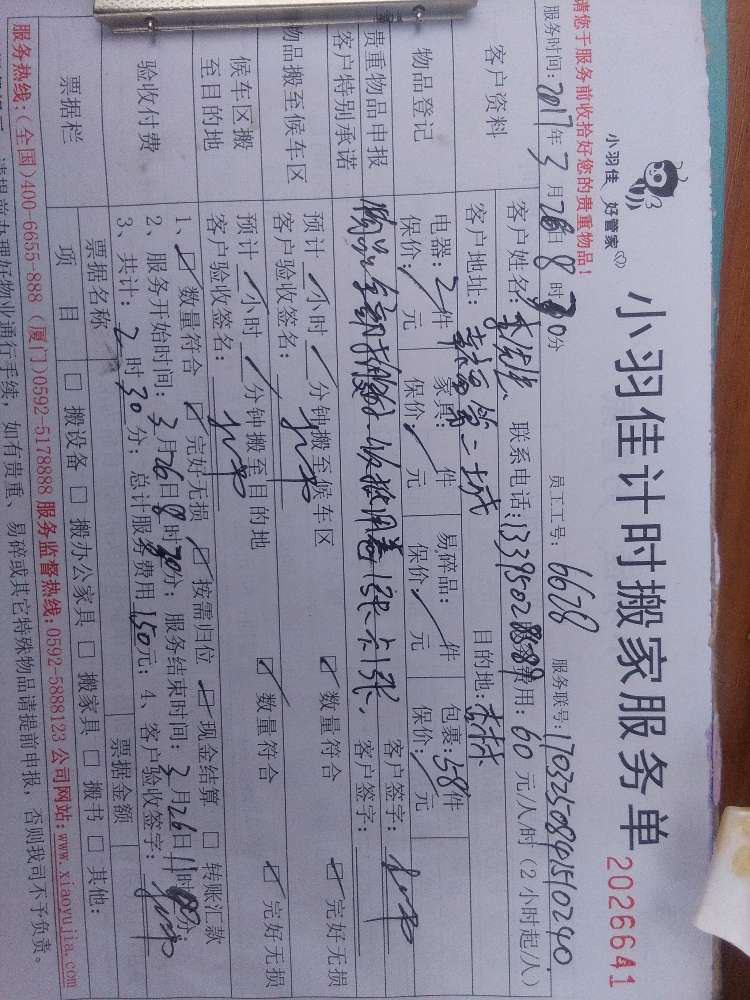 小羽佳计时搬家服务单
2026641
小羽佳 好管家
请您于服务前收拾好您的贵重物品!
员工工号: 6628 服务联号: 1703250841510240
服务时间: 2017年3月26日8时30分
客户资料
客户姓名: 李先生 联系电话: 费用: 60元/人/时(2小时起/人)
客户地址: 第二城 目的地: 杏林
物品登记
电器: 2件 家具: 件 易碎品: 件 包裹: 58件
保价: / 元 保价: / 元 保价: / 元 保价: / 元
贵重物品申报
客户特别承诺
客户签字:
客户签字:
物品搬至候车区
预计 / 小时 / 分钟搬至候车区 ☑ 数量符合 ☑ 完好无损
客户验收签名:
候车区搬至目的地
预计 / 小时 / 分钟搬至目的地 ☑ 数量符合 ☑ 完好无损
客户验收签名:
验收付费
1、☑ 数量符合 ☑ 完好无损 ☑ 按需归位 ☑ 现金结算 □ 转账汇款
2、服务开始时间: 3月26日8时30分; 服务结束时间: 3月26日11时00分;
3、共计: 2时30分; 总计服务费用150元; 4、客户验收签字:
票据栏
票据名称 票据金额
项目 □ 搬设备 □ 搬办公家具 □ 搬家具 □ 搬书 □ 其他:
服务热线:(全国)400-6655-888 (厦门)0592-5178888 服务监督热线:0592-5888123 公司网站:www.xiaoyujia.com
请提前办理好物业通行手续, 如有贵重、易碎或其它特殊物品请提前申报, 否则我司不予负责。